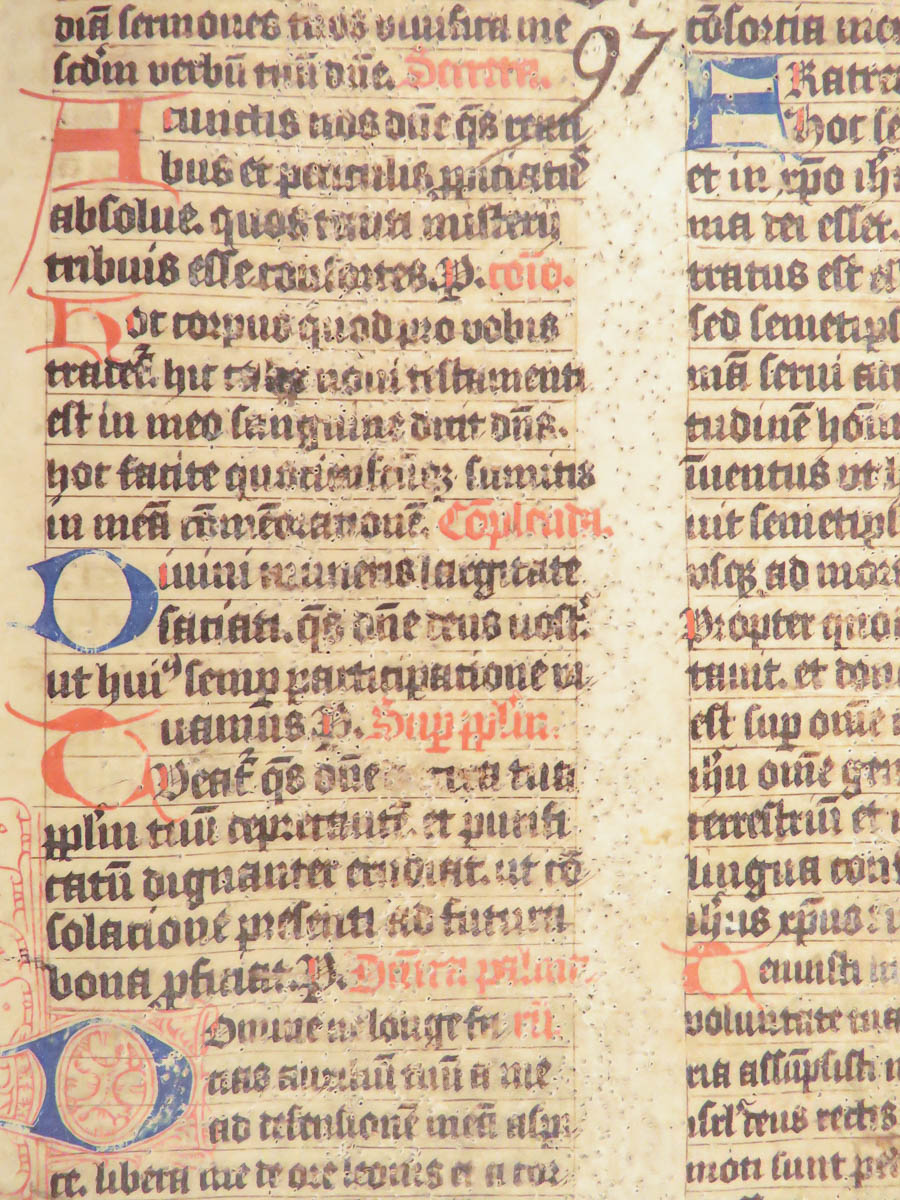 diā sermones tuos vivifica me
scdm verbū tuū dñe. Secreta.
A cunctis nos dñe q̄s reati
bus et periculis ꝓpiciatus
absolve. quos tanti misterij
tribuis esse consortes. P. cōio.
Hoc corpus quod pro vobis
tradet᷑. hic calix novi testamenti
est in meo sanguine dicit dñs.
hoc facite quotienscūqꝫ sumitis
in meā cōmēoracionē. Cōplenda.
Divini muneris largitate
saciati. q̄s dñe deus nost᷑
ut huiꝰ semꝑ participatione vi
vamus P. Suꝑ pplm.
Tveat᷑ q̄s dñe dextera tua
pplm tuū deprecantē. et purifi
catū dignanter erudiat. ut cō
solacione presenti ad futura
bona ꝓficiat. P. Dñica palmarū
Domine ne longe fa
cias auxiliū tuū a me
ad defensionē meā aspi
ce. libera me de ore leonis et a cor
97
cōsortia
ratres
Hoc se
et in xp̄o ih̄
ma dei esset.
tratus est
sed semetips
mā servi ac
tudinē homi
īventus ut
vit semetips
usqꝫ ad mor
Propter quo
tavit. et don
est suꝑ omē
ih̄u omē gen
terrestriū et
lingua cōfi
ih̄us xp̄us
Tenuisti
voluntate tua
ria assūpsisti
isrl deus rectis
moti sunt pe